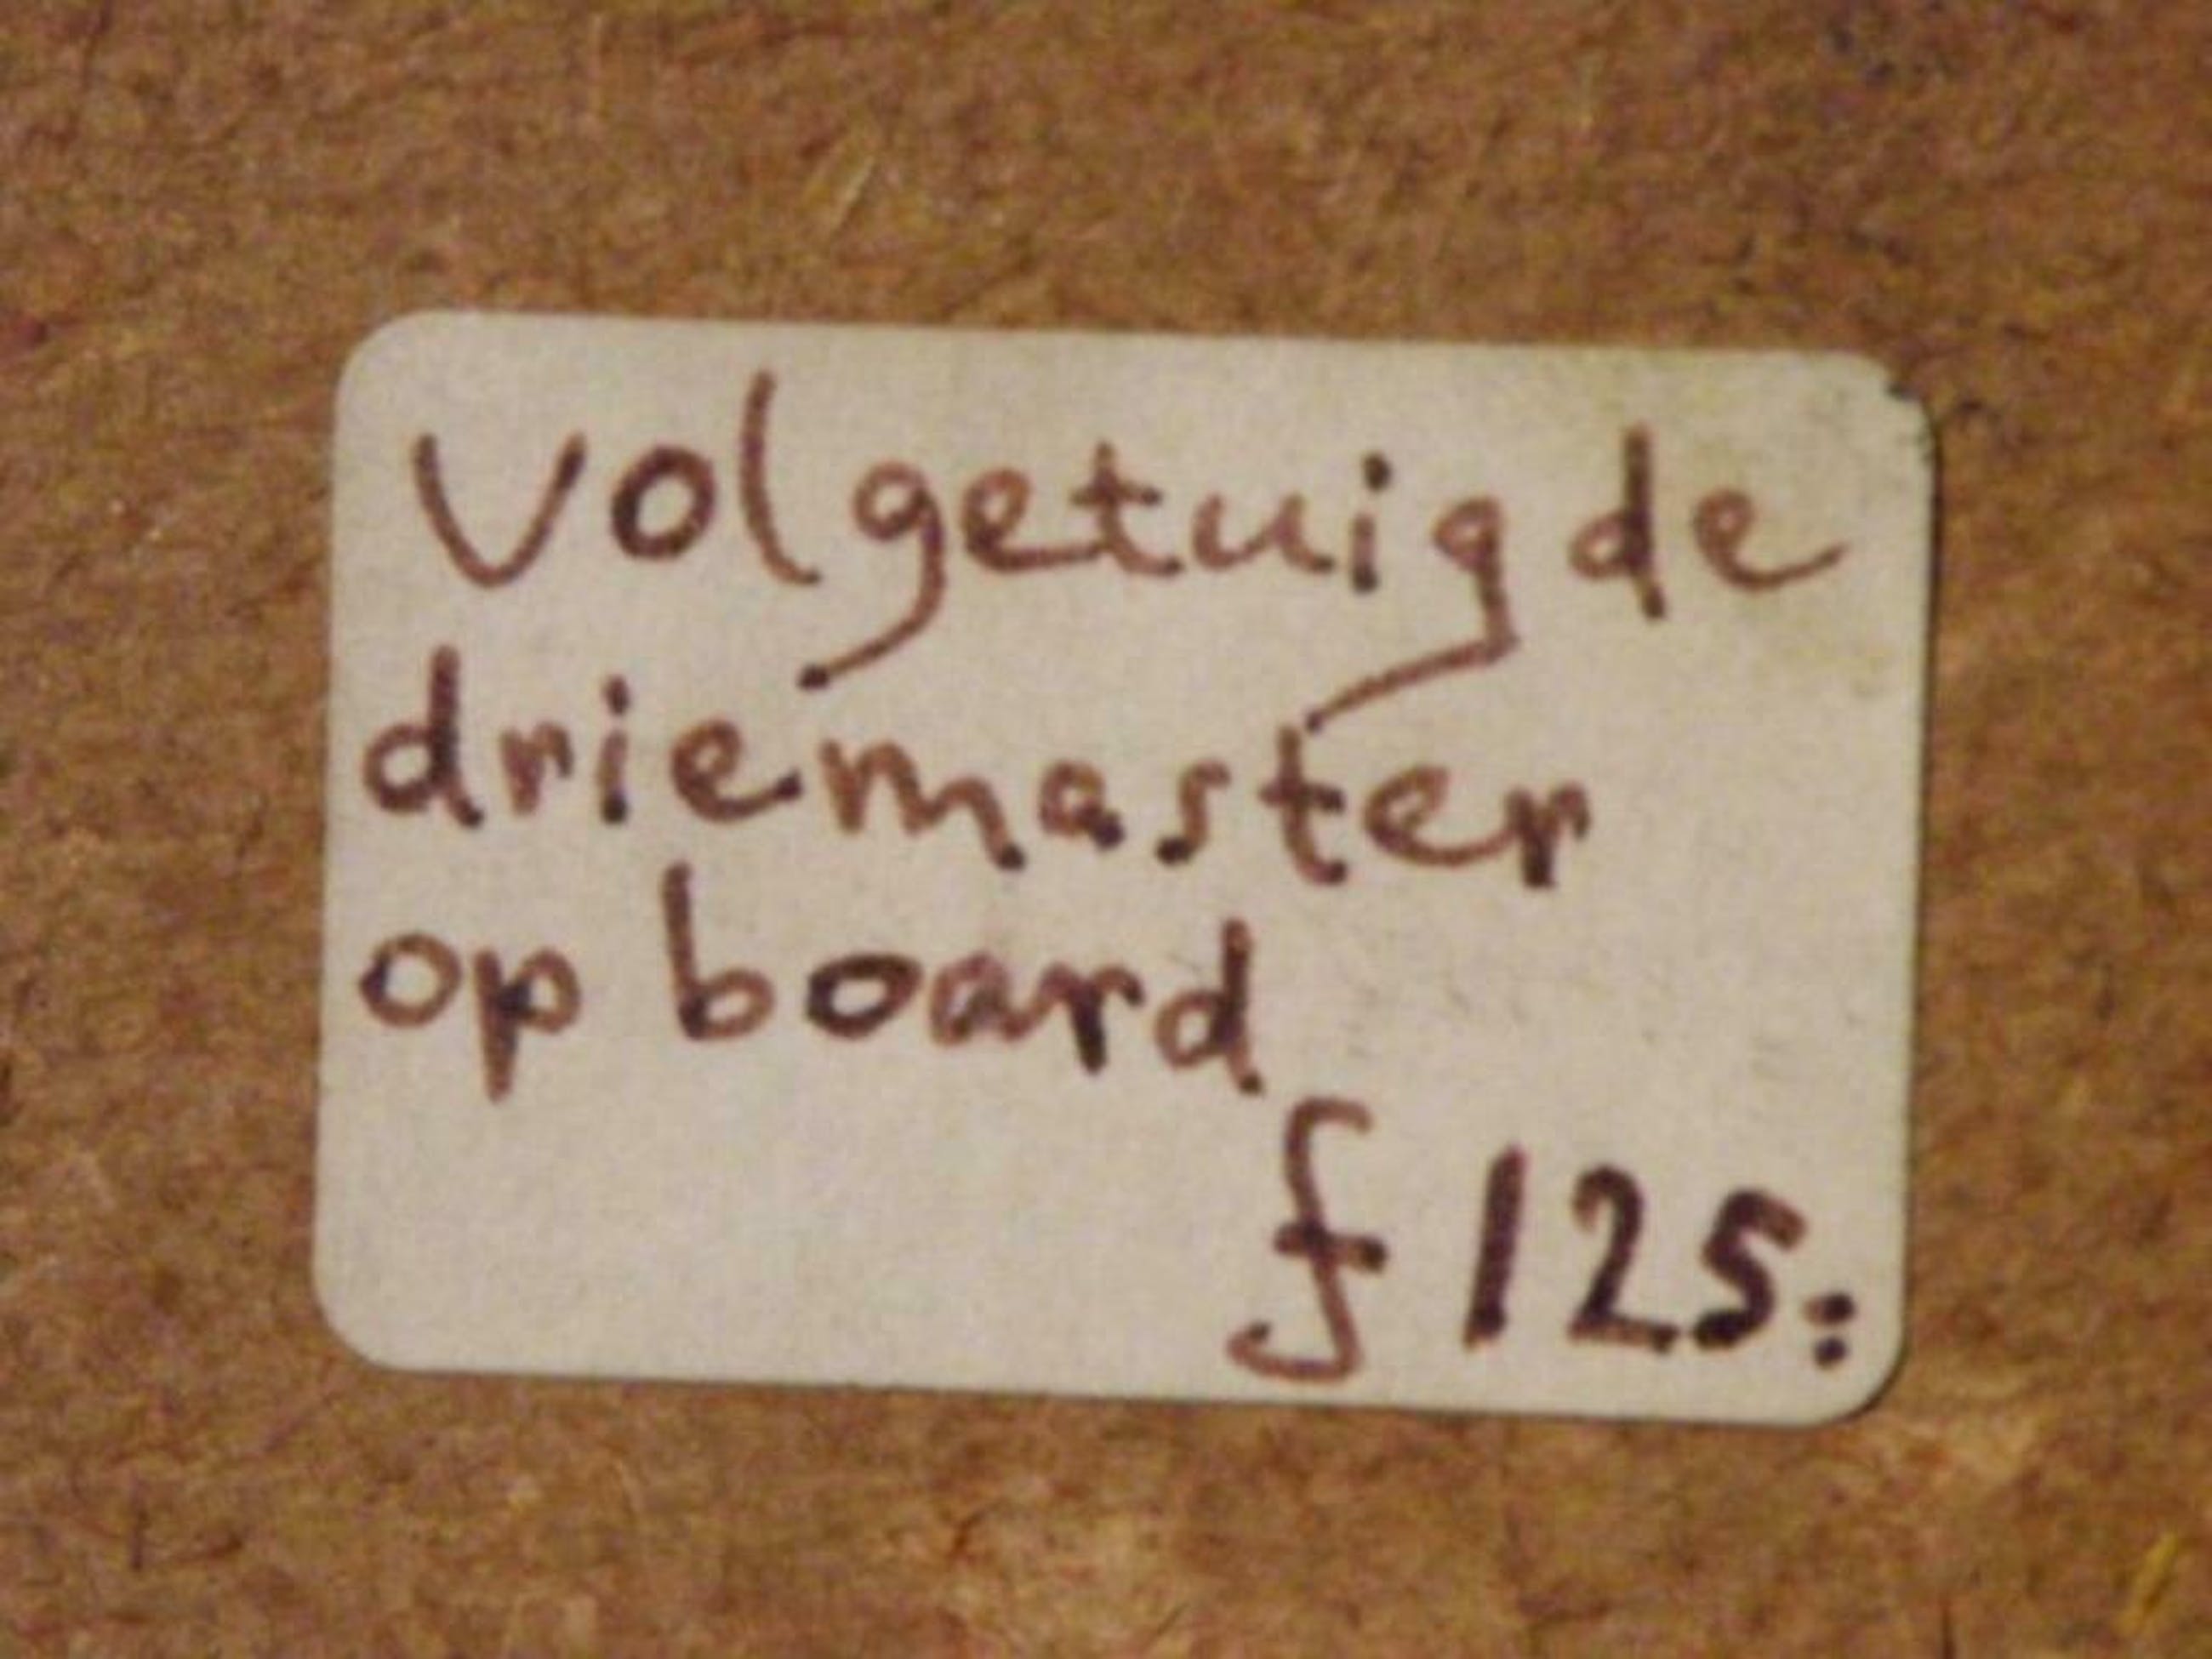 volgetuigde
driemaster
op board
f 125: